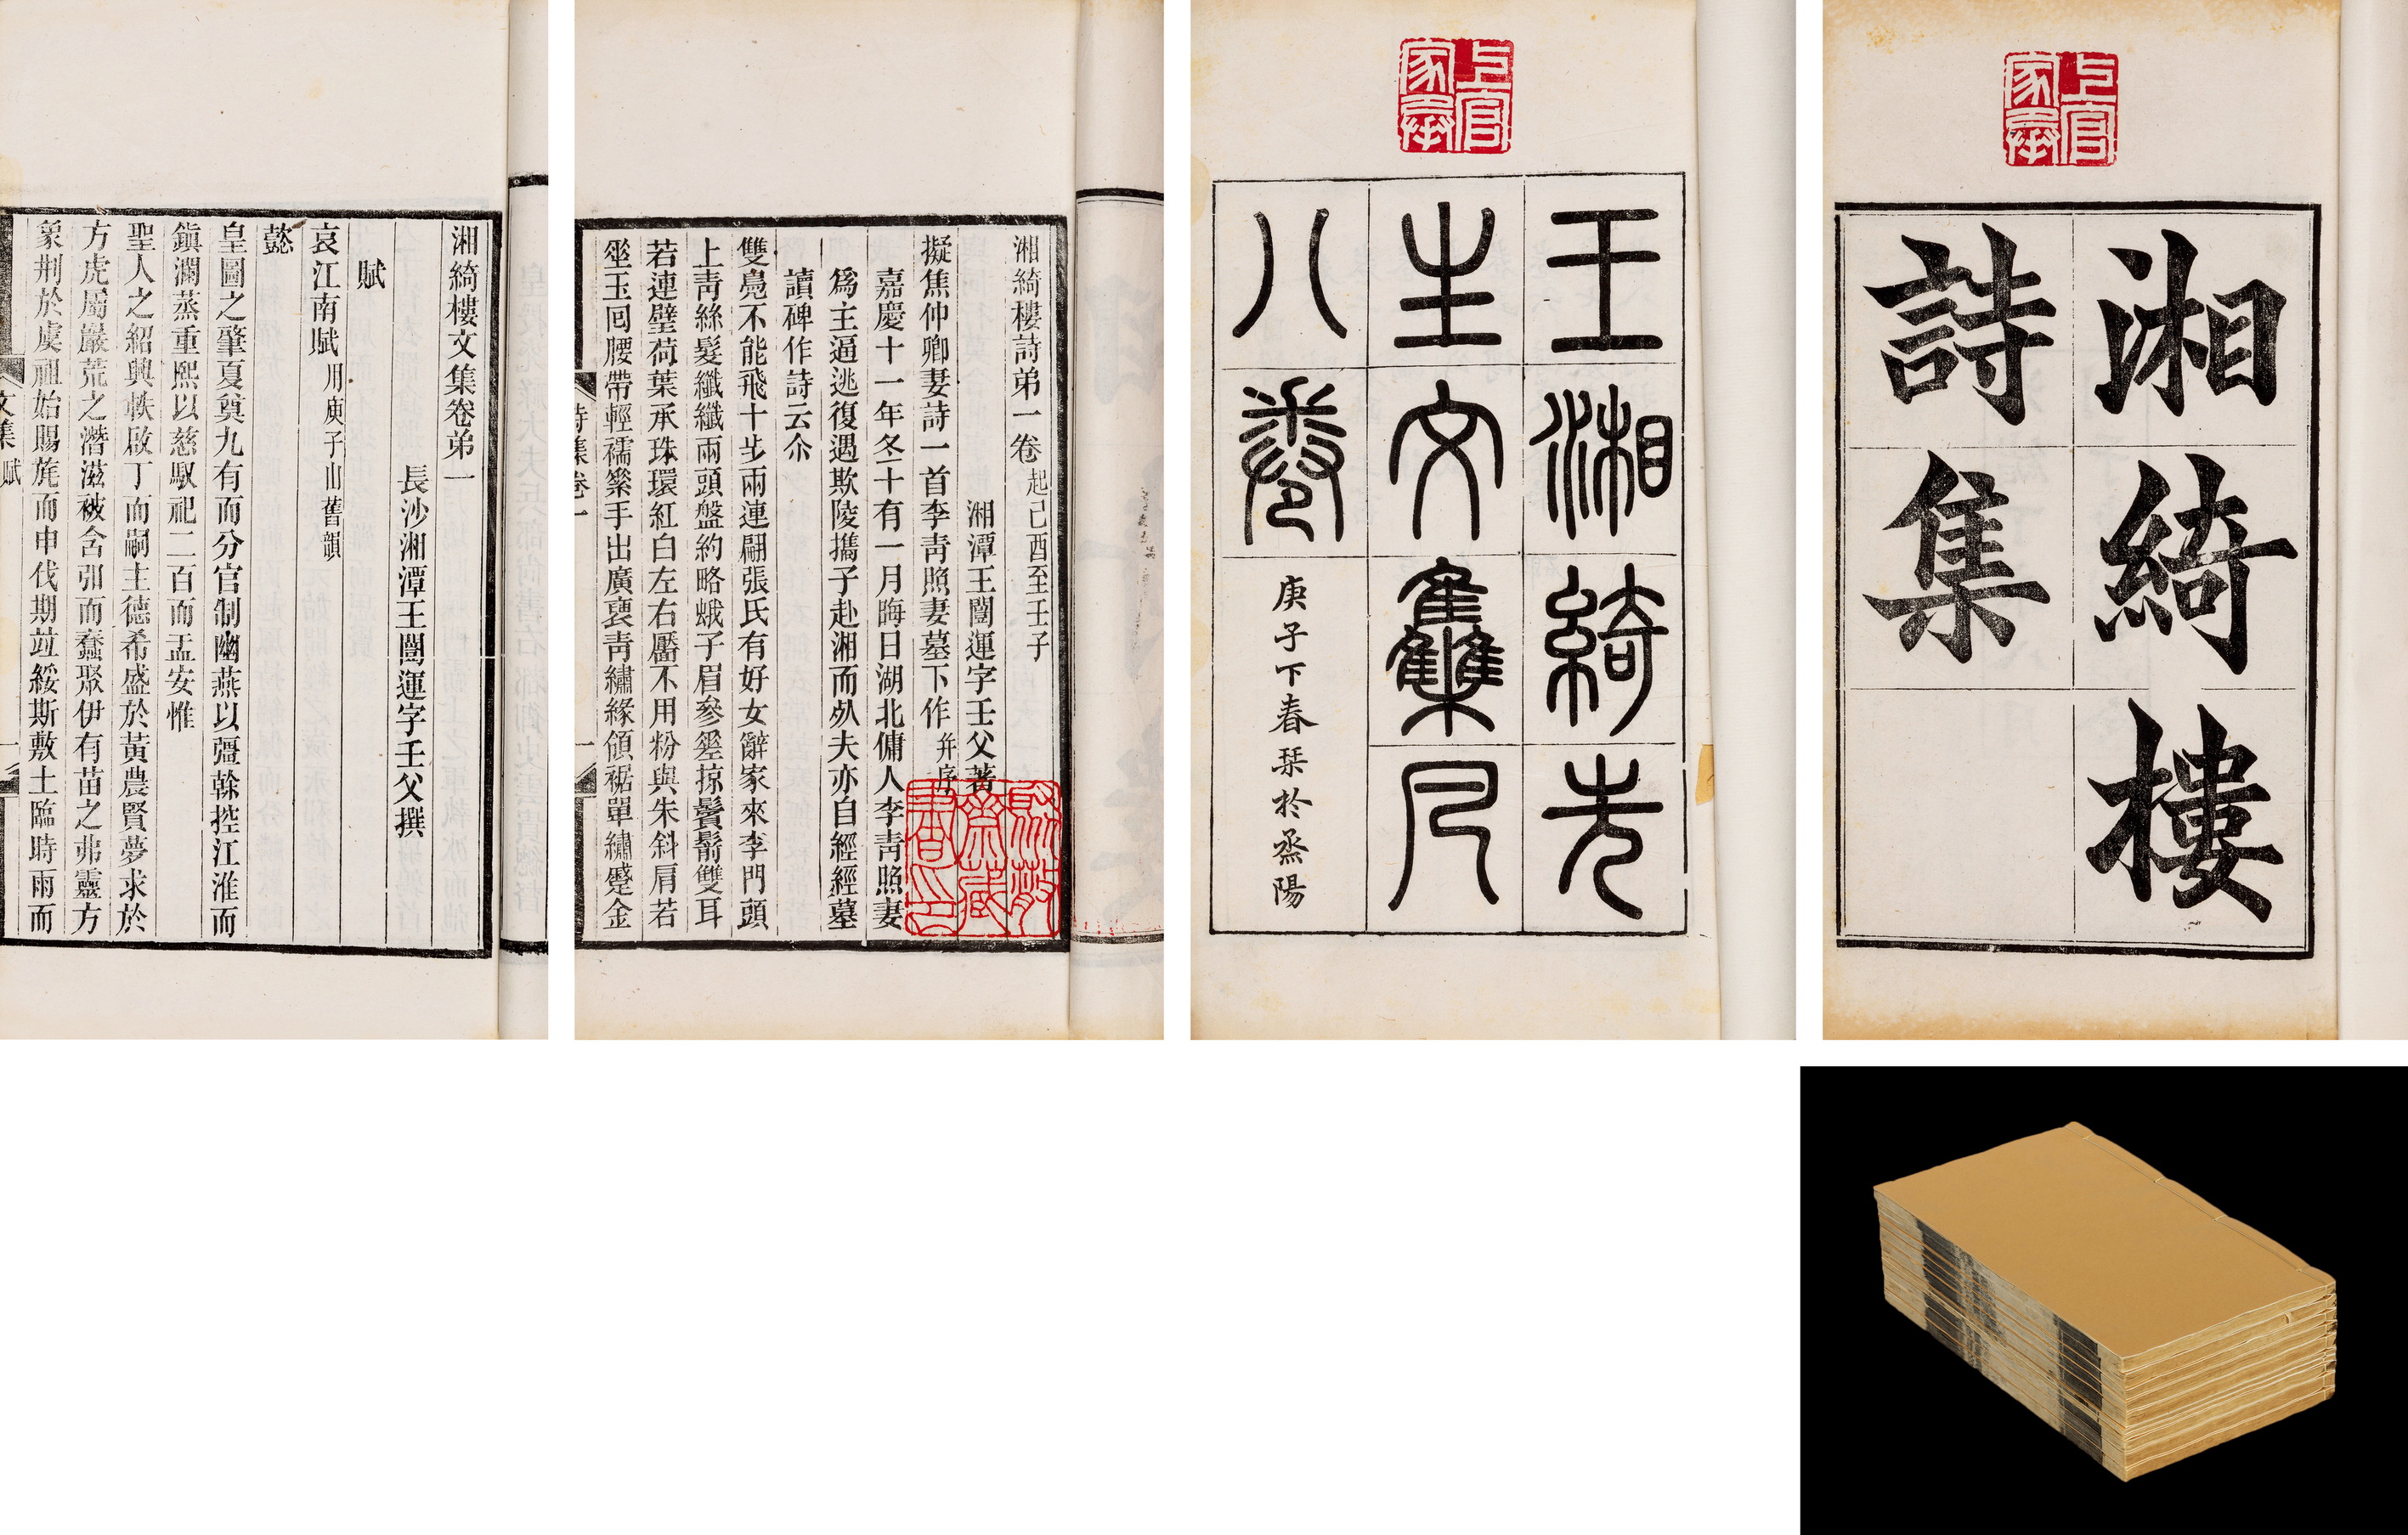 湘綺樓
詩集
王湘綺先
生文集凡
八卷
庚子下春栞於烝陽
湘綺樓詩弟一卷 起己酉至壬子
湘潭王闓運字壬父著
擬焦仲卿妻詩一首李青照妻墓下作 并序
嘉慶十一年冬十有一月晦日湖北傭人李青照妻
爲主逼逃復遇欺陵攜子赴湘而死夫亦自經經墓
讀碑作詩云尒
雙鳧不能飛十步兩連翩張氏有好女辭家來李門頭
上青絲髮纖纖兩頭盤約略蛾子眉參差掠鬢鬋雙耳
若連璧荷葉承珠環紅白左右靨不用粉與朱斜肩若
坐玉回腰帶輕襦縏手出廣袖青繡緣領裾單繡躞金
詩集卷一
湘綺樓文集卷弟一
長沙湘潭王闓運字壬父撰
賦
哀江南賦 用庾子山舊韻
懿
皇圖之肇夏奠九有而分官制幽燕以彊榦控江淮而
鎮瀾蒸重熙以慈馭祀二百而盂安惟
聖人之紹興軼啟丁而嗣主德希盛於黃農賢夢求於
方虎屬嚴荒之潛滋被含弘而蠢聚伊有苗之弗靈方
象荆於虞祖始賜旄而申伐期竝綏斯敷土臨時雨而
文集 賦
上官
家宰